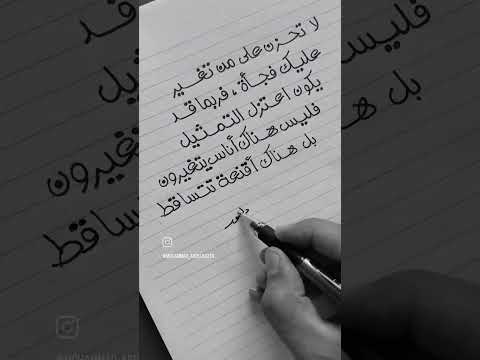 لا تحزن على من تغير
عليك فجأة، فربما قد
يكون اعتزل التمثيل
فليس هناك أناس يتغيرون
بل هناك أقنعة تتساقط